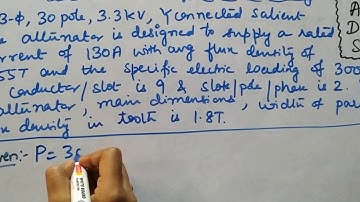 3-Φ, 30 pole, 3.3 kV, Y connected salient
alternator is designed to supply a rated
current of 130A with avg flux density of
55T and the specific electric loading of 300
conductor/slot is 9 & slot/pole/phase is 2.
alternator, main dimensions, width of
density in tooth is 1.8T.
P= 3
A
D